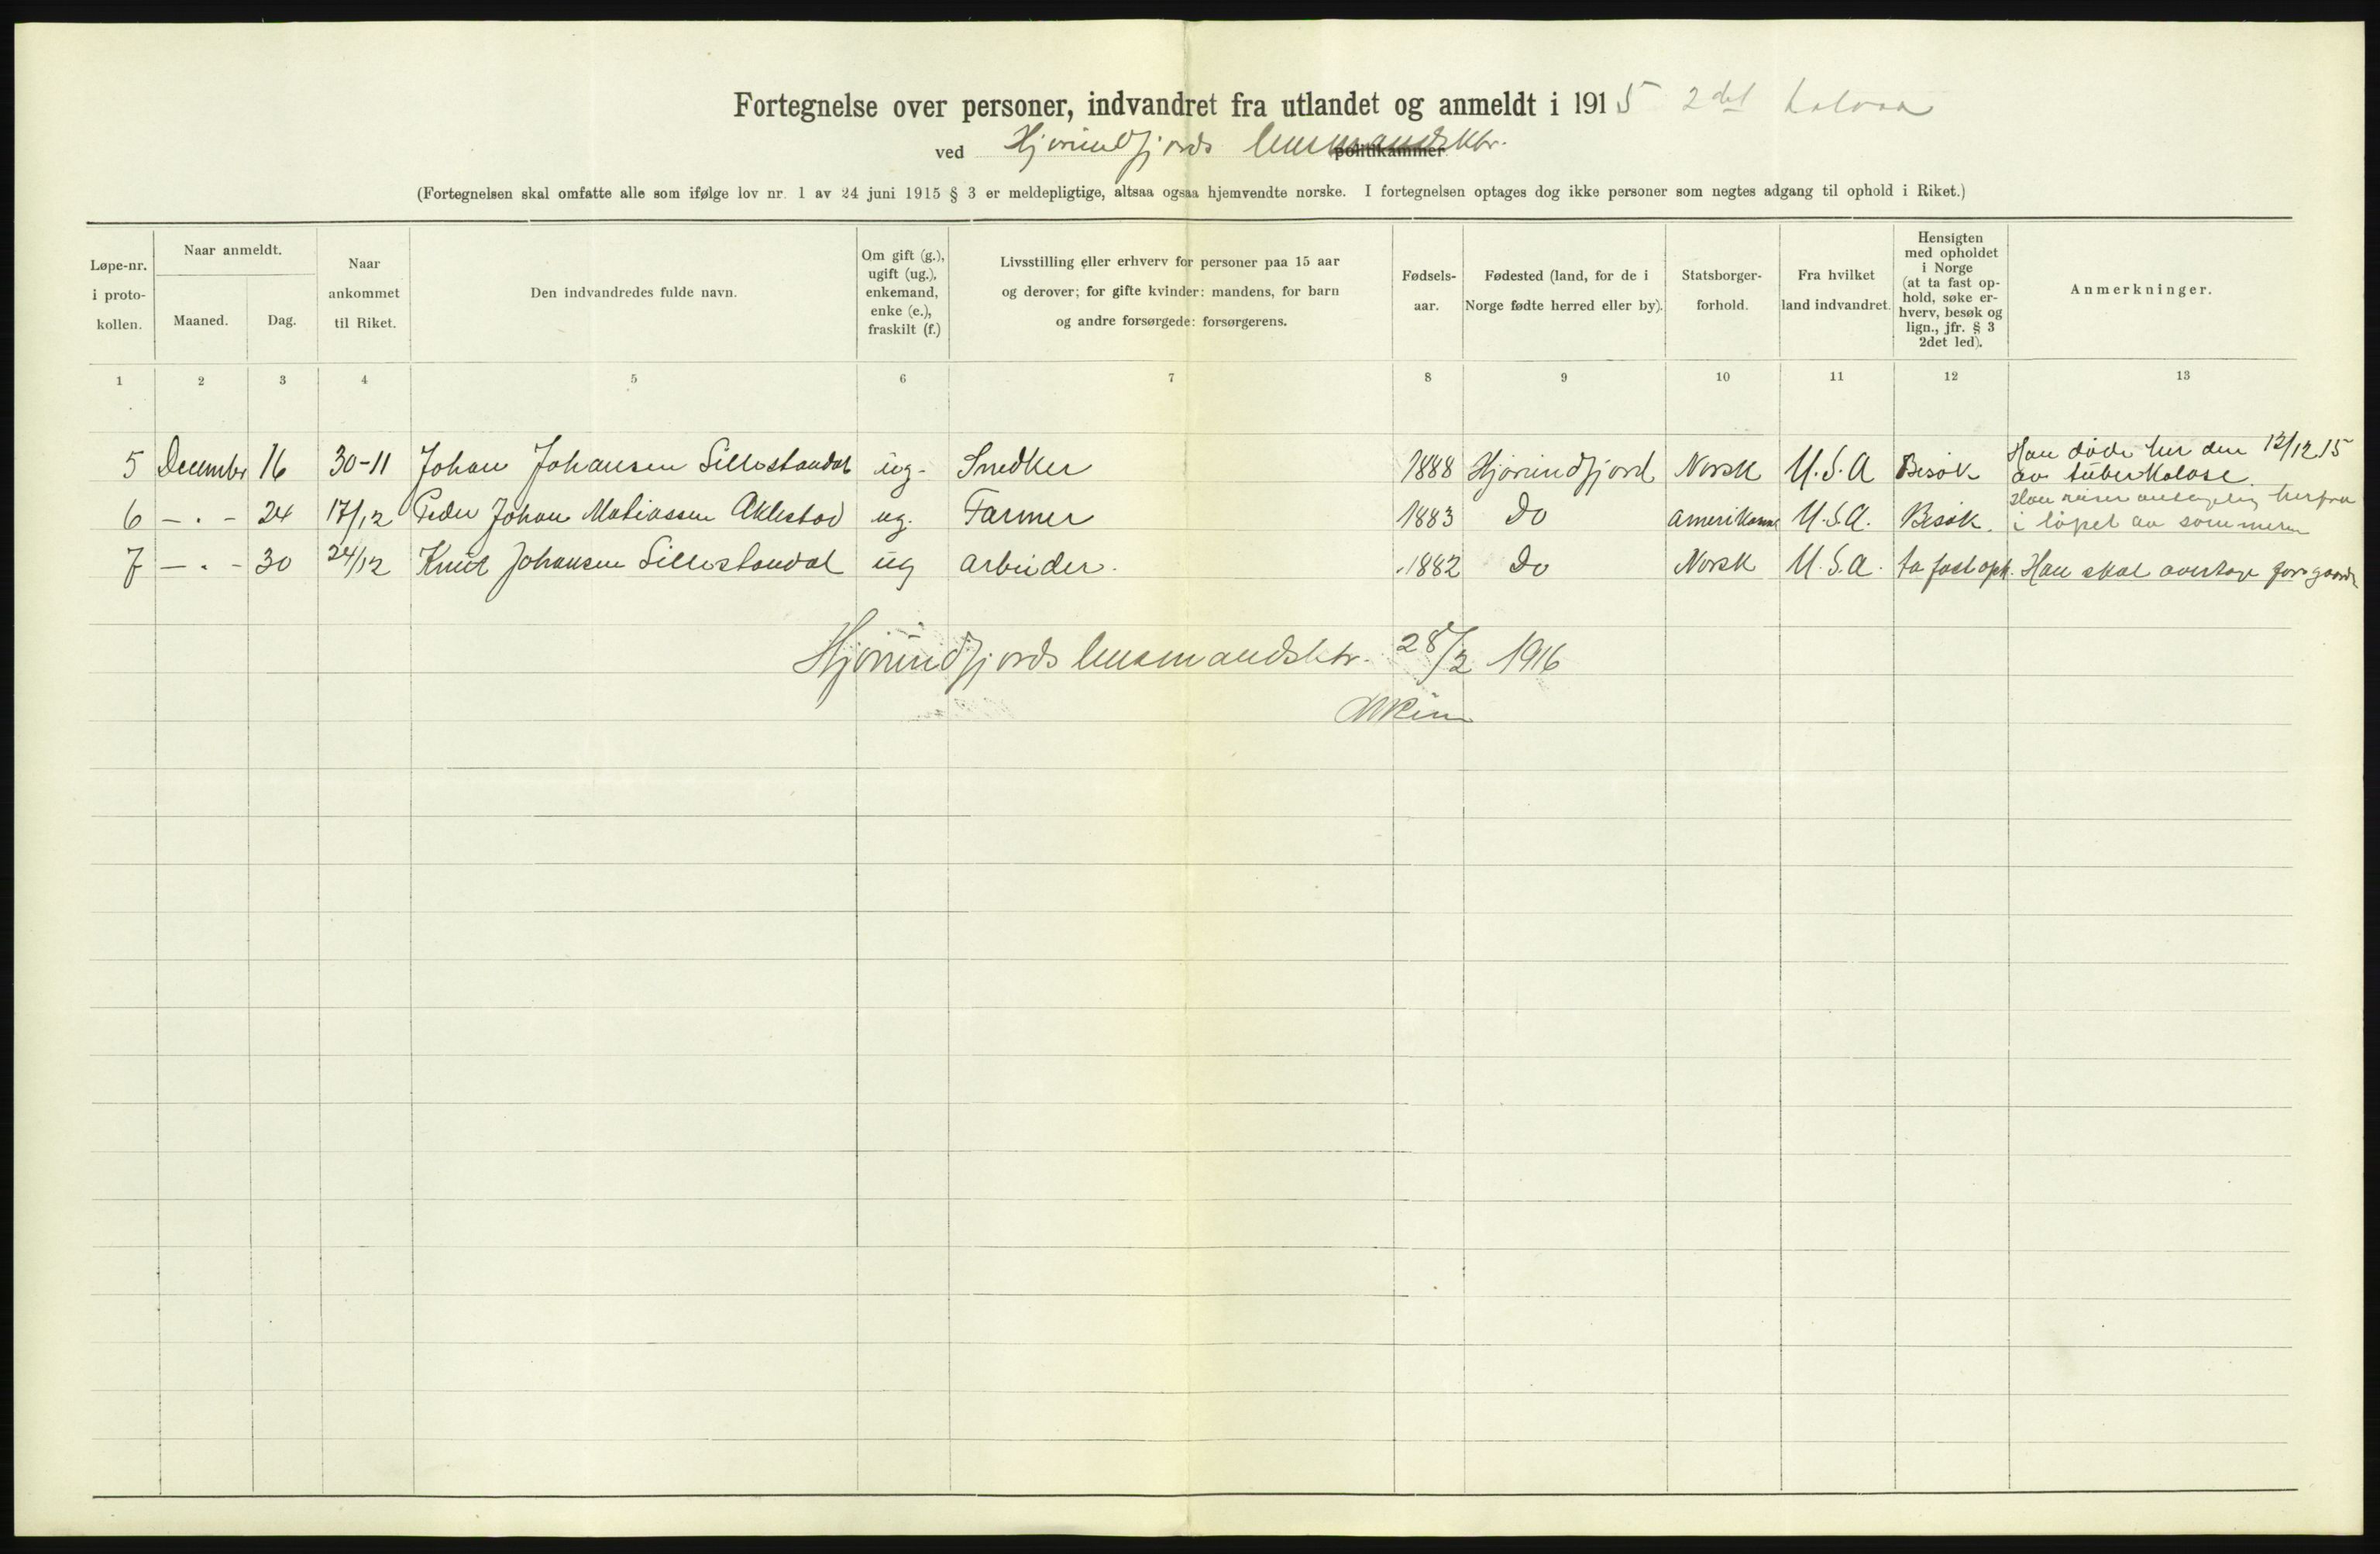 Fortegnelse over personer, indvandret fra utlandet og anmeldt i 1915 2det halvaar
ved Hjørundfjords lensmandsktr. politikammer
(Fortegnelsen skal omfatte alle som ifølge lov nr. 1 av 24 juni 1915 § 3 er meldepligtige, altsaa ogsaa hjemvendte norske. I fortegnelsen optages dog ikke personer som negtes adgang til ophold i Riket.)
Løpe-nr. i proto-kollen. Naar anmeldt. Maaned. Dag. Naar ankommet til Riket. Den indvandredes fulde navn. Om gift (g.), ugift (ug.), enkemand, enke (e.), fraskilt (f.) Livsstilling eller erhverv for personer paa 15 aar og derover; for gifte kvinder: mandens, for barn og andre forsørgede: forsørgerens. Fødsels-aar. Fødested (land, for de i Norge fødte herred eller by). Statsborger-forhold. Fra hvilket land indvandret. Hensigten med opholdet i Norge (at ta fast op-hold, søke er-hverv, besøk og lign., jfr. § 3 2det led). Anmerkninger.
1 2 3 4 5 6 7 8 9 10 11 12 13
5 December 16 30-11 Johan Johansen Sillestandal ug. Snedker 1888 Hjørundfjord Norsk U.S.A Besøk Han døde her den 12/12.15 av tuberkolose.
6 - . - 24 17/12 Peder Johan Matiassen Aklestad ug. Farmer 1883 Do Amerikansk U.S.A. Besøk. Han reiser antagelig herfra i løpet av sommeren
7 - . - 30 24/12 Knut Johansen Sillestandal ug arbeider. 1882 Do Norsk U.S.A. ta fast oph. Han skal overtage fars gaard
Hjørundfjords lensmandsktr. 28/2 1916